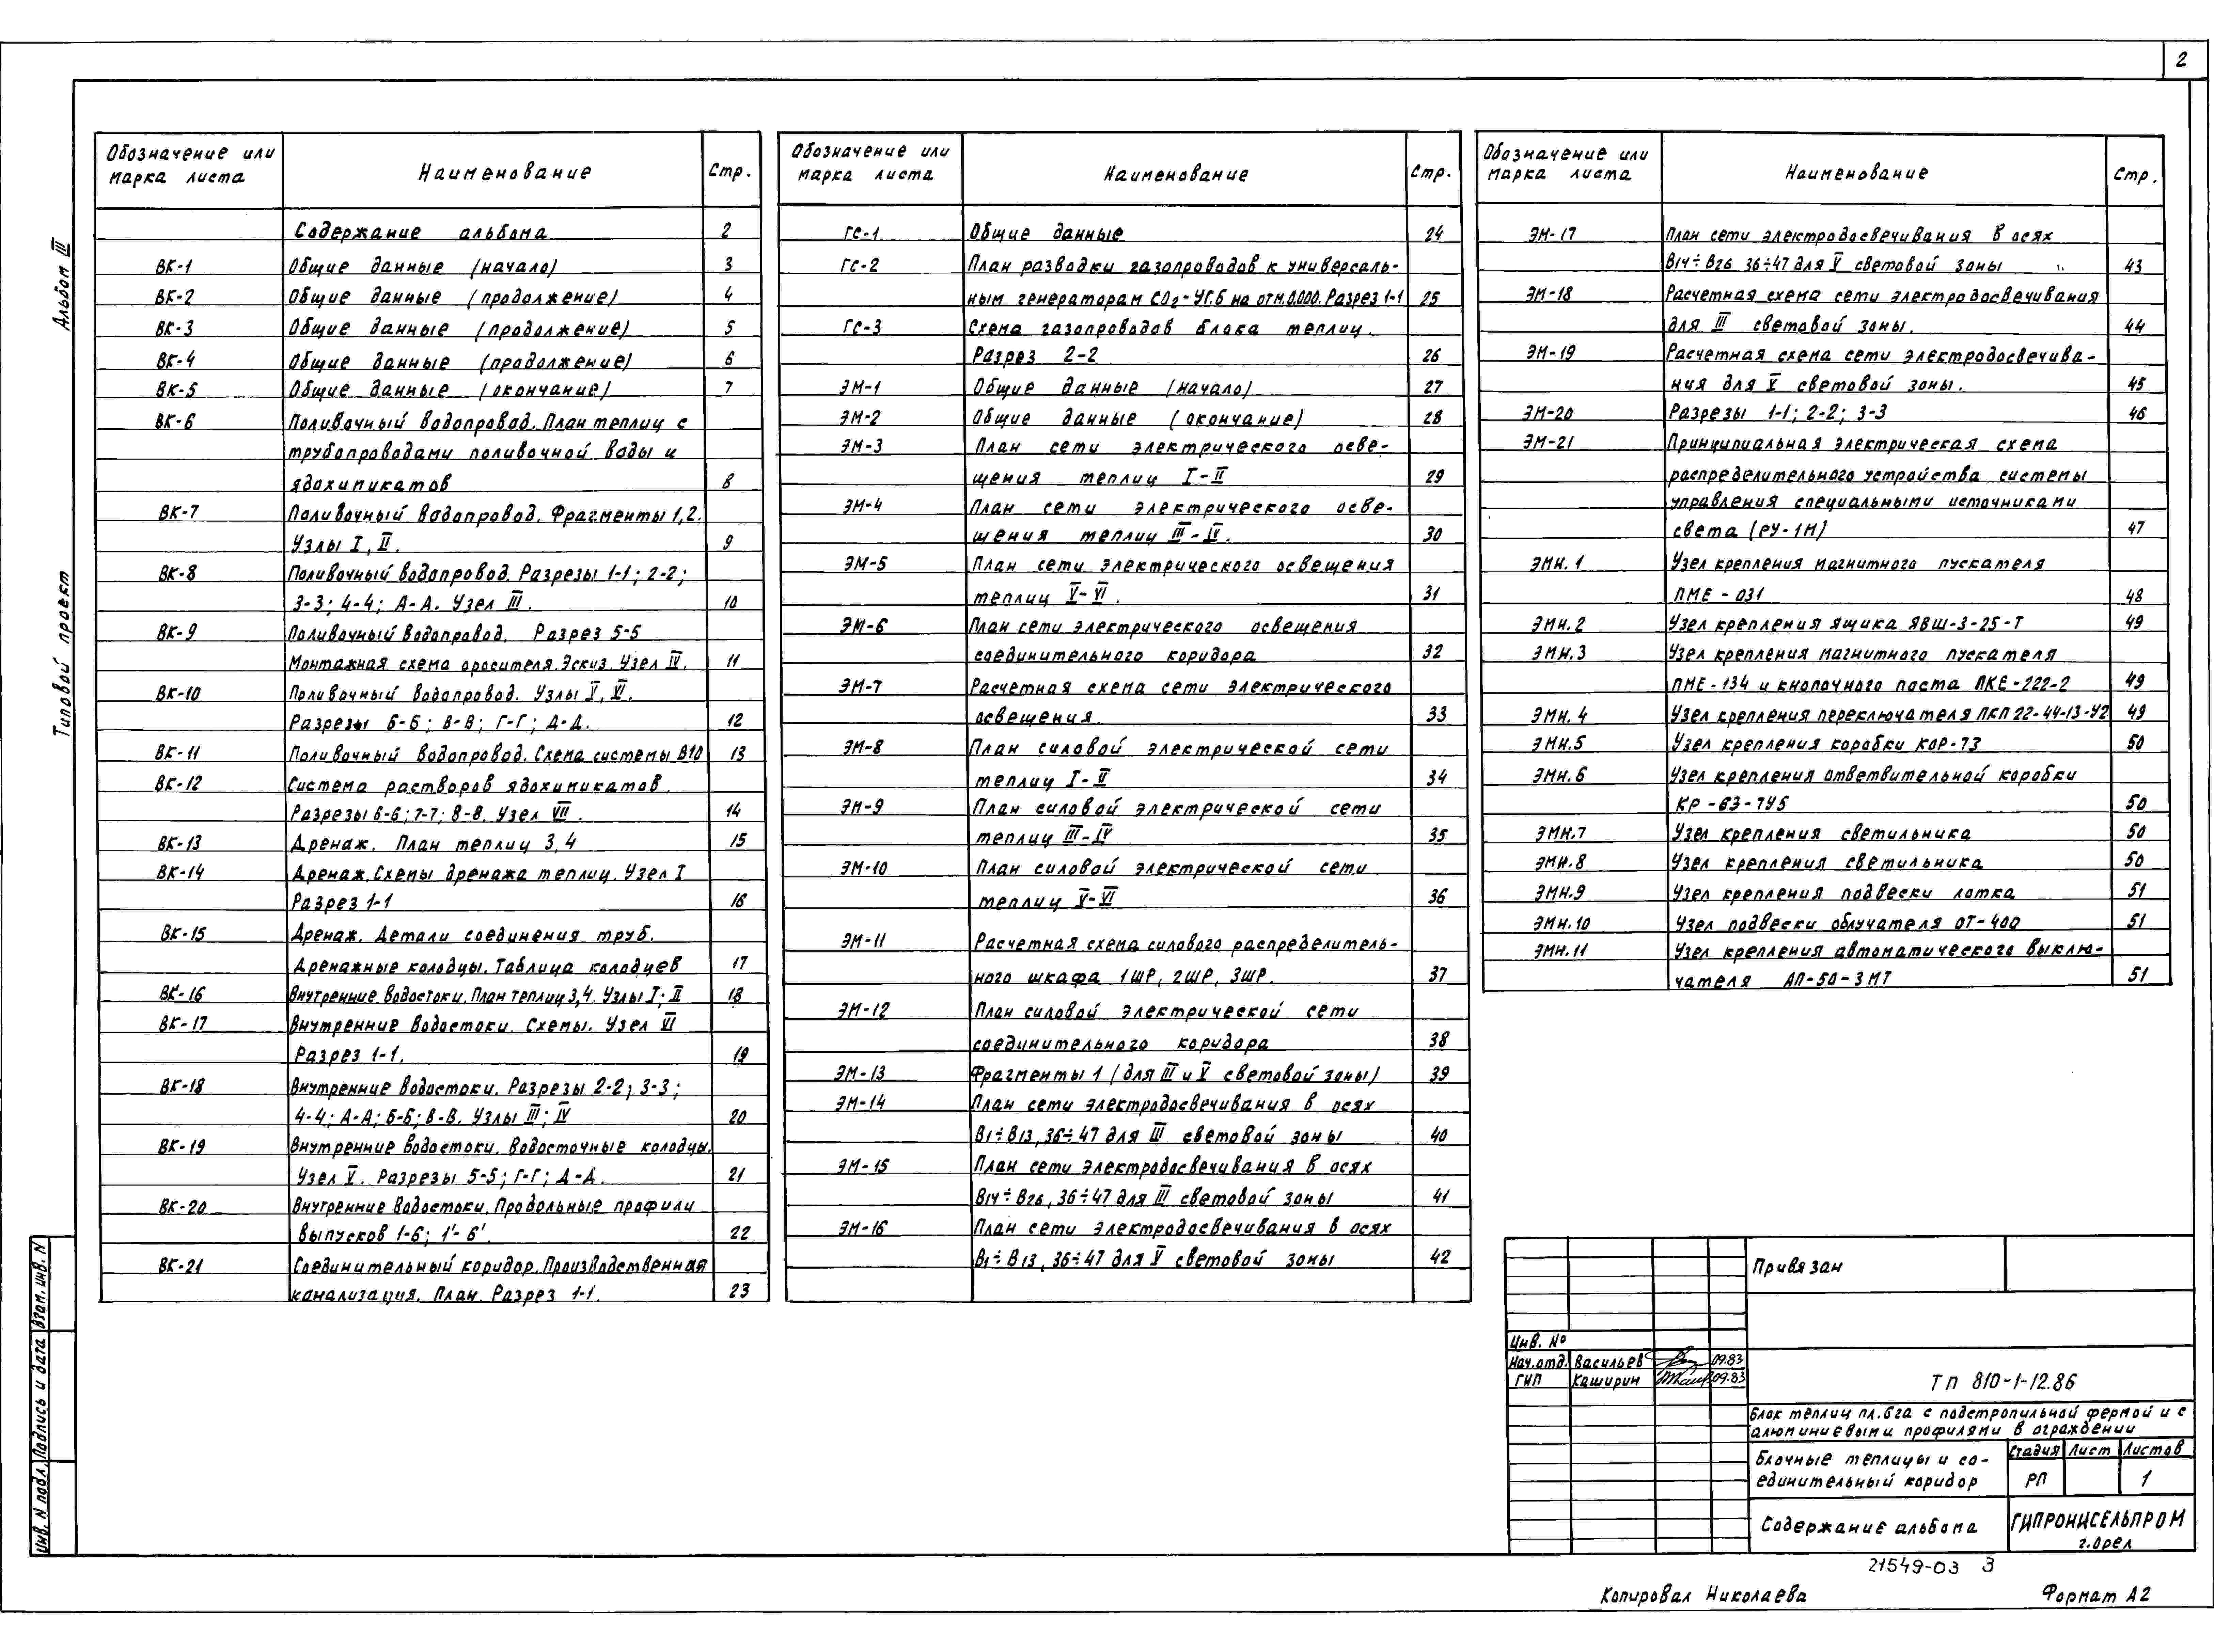 2
Альбом III
Типовой проект
Обозначение или марка листа Наименование Стр.
Содержание альбома 2
ВК-1 Общие данные (начало) 3
ВК-2 Общие данные (продолжение) 4
ВК-3 Общие данные (продолжение) 5
ВК-4 Общие данные (продолжение) 6
ВК-5 Общие данные (окончание) 7
ВК-6 Поливочный водопровод. План теплиц с
трубопроводами поливочной воды и
ядохимикатов 8
ВК-7 Поливочный водопровод. Фрагменты 1,2.
Узлы I, II. 9
ВК-8 Поливочный водопровод. Разрезы 1-1; 2-2;
3-3; 4-4; А-А. Узел III. 10
ВК-9 Поливочный водопровод. Разрез 5-5
Монтажная схема оросителя. Эскиз. Узел IV. 11
ВК-10 Поливочный водопровод. Узлы V, VI.
Разрезы Б-Б; В-В; Г-Г; Д-Д. 12
ВК-11 Поливочный водопровод. Схема системы В10 13
ВК-12 Система растворов ядохимикатов.
Разрезы 6-6; 7-7; 8-8. Узел VII. 14
ВК-13 Дренаж. План теплиц 3,4 15
ВК-14 Дренаж. Схемы дренажа теплиц. Узел I
Разрез 1-1 16
ВК-15 Дренаж. Детали соединения труб.
Дренажные колодцы. Таблица колодцев 17
ВК-16 Внутренние водостоки. План теплиц 3,4. Узлы I; II 18
ВК-17 Внутренние водостоки. Схемы. Узел VI
Разрез 1-1. 19
ВК-18 Внутренние водостоки. Разрезы 2-2; 3-3;
4-4; А-А; Б-Б; В-В. Узлы III; IV 20
ВК-19 Внутренние водостоки. Водосточные колодцы.
Узел V. Разрезы 5-5; Г-Г; Д-Д. 21
ВК-20 Внутренние водостоки. Продольные профили
выпусков 1-6; 1'-6'. 22
ВК-21 Соединительный коридор. Производственная
канализация. План. Разрез 1-1. 23
Обозначение или марка листа Наименование Стр.
ГС-1 Общие данные 24
ГС-2 План разводки газопроводов к универсаль-
ным генераторам СО2-УГ.6 на отм. 0.000. Разрез 1-1 25
ГС-3 Схема газопроводов блока теплиц.
Разрез 2-2 26
ЭМ-1 Общие данные (начало) 27
ЭМ-2 Общие данные (окончание) 28
ЭМ-3 План сети электрического осве-
щения теплиц I-II 29
ЭМ-4 План сети электрического осве-
щения теплиц III-IV. 30
ЭМ-5 План сети электрического освещения
теплиц V-VI. 31
ЭМ-6 План сети электрического освещения
соединительного коридора 32
ЭМ-7 Расчетная схема сети электрического
освещения. 33
ЭМ-8 План силовой электрической сети
теплиц I-II 34
ЭМ-9 План силовой электрической сети
теплиц III-IV 35
ЭМ-10 План силовой электрической сети
теплиц V-VI 36
ЭМ-11 Расчетная схема силового распределитель-
ного шкафа 1ШР, 2ШР, 3ШР. 37
ЭМ-12 План силовой электрической сети
соединительного коридора 38
ЭМ-13 Фрагменты 1 (для III и V световой зоны) 39
ЭМ-14 План сети электродосвечивания в осях
В1÷В13, 36÷47 для III световой зоны 40
ЭМ-15 План сети электродосвечивания в осях
В14÷В26, 36÷47 для III световой зоны 41
ЭМ-16 План сети электродосвечивания в осях
В1÷В13, 36÷47 для V световой зоны 42
Обозначение или марка листа Наименование Стр.
ЭМ-17 План сети электродосвечивания в осях
В14÷В26 36÷47 для V световой зоны 43
ЭМ-18 Расчетная схема сети электродосвечивания
для III световой зоны. 44
ЭМ-19 Расчетная схема сети электродосвечива-
ния для V световой зоны. 45
ЭМ-20 Разрезы 1-1; 2-2; 3-3 46
ЭМ-21 Принципиальная электрическая схема
распределительного устройства системы
управления специальными источниками
света (РУ-1М) 47
ЭМН.1 Узел крепления магнитного пускателя
ПМЕ-031 48
ЭМН.2 Узел крепления ящика ЯВШ-3-25-Т 49
ЭМН.3 Узел крепления магнитного пускателя
ПМЕ-134 и кнопочного поста ПКЕ-222-2 49
ЭМН.4 Узел крепления переключателя ПКП 22-44-13-У2 49
ЭМН.5 Узел крепления коробки КОР-73 50
ЭМН.6 Узел крепления ответвительной коробки
КР-63-7У5 50
ЭМН.7 Узел крепления светильника 50
ЭМН.8 Узел крепления светильника 50
ЭМН.9 Узел крепления подвески лотка 51
ЭМН.10 Узел подвески облучателя ОТ-400 51
ЭМН.11 Узел крепления автоматического выклю-
чателя АП-50-3МТ 51
Привязан
Инв. №
Нач.отд. Васильев 09.83
ГИП Каширин 09.83
ТП 810-1-12.86
Блок теплиц пл.6га с подстропильной фермой и с
алюминиевыми профилями в ограждении
Блочные теплицы и со-
единительный коридор
Стадия Лист Листов
РП 1
Содержание альбома
ГИПРОНИСЕЛЬПРОМ
г.Орел
Инв. N подл. Подпись и дата Взам. инв. N
21549-03 3
Копировал Николаева
Формат А2